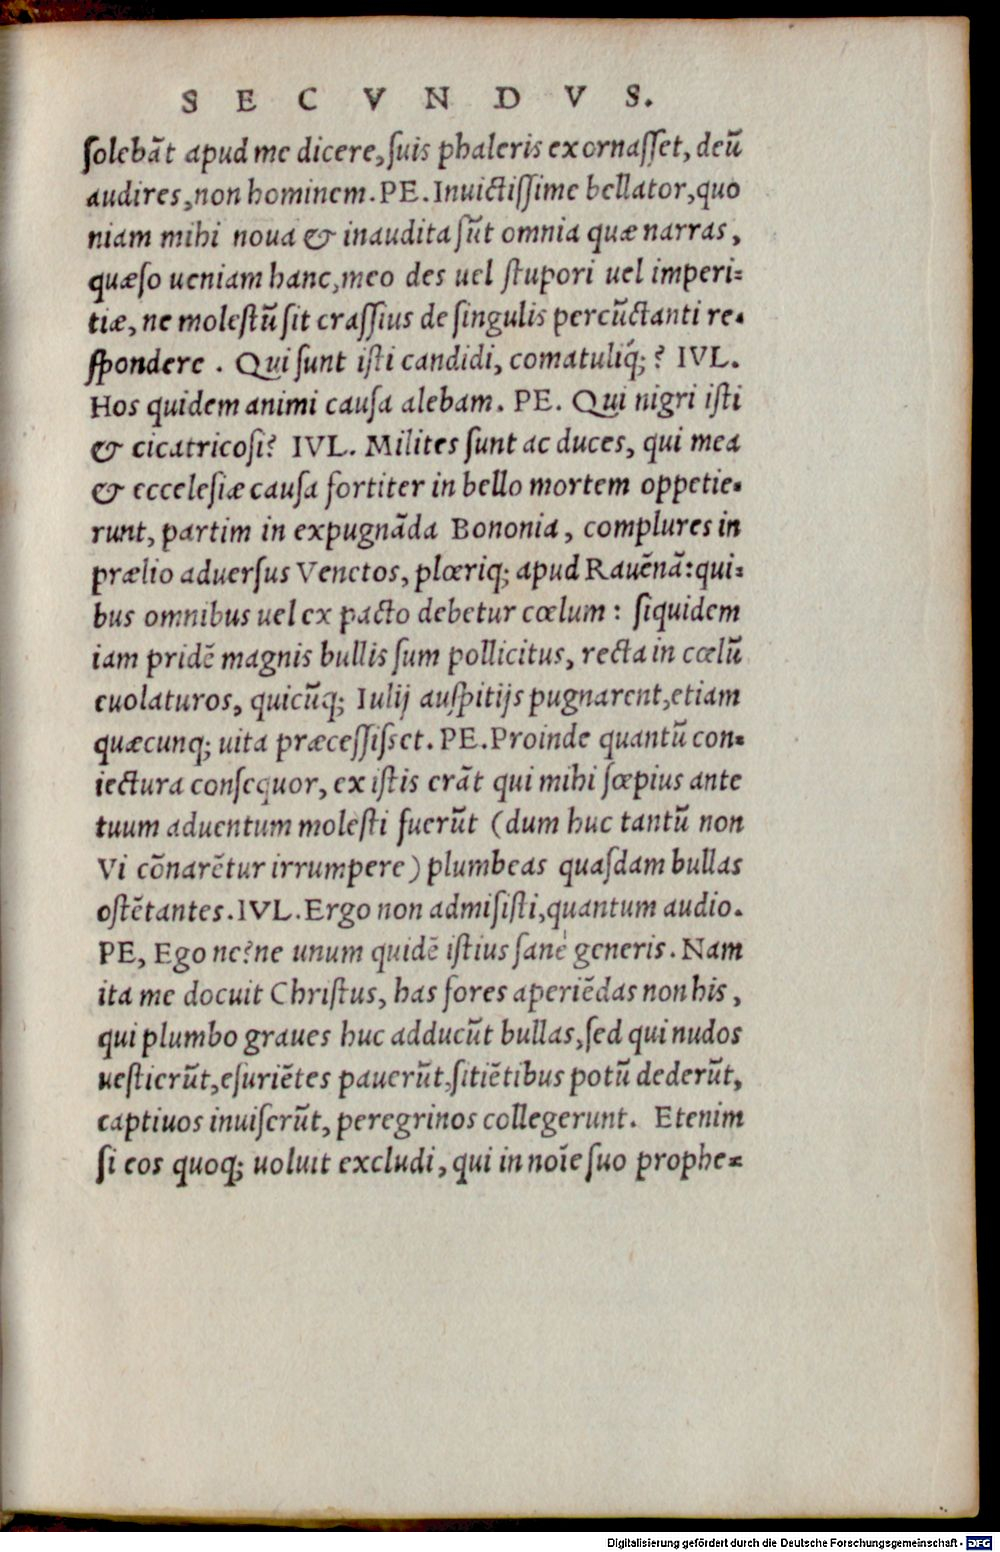 SECVNDVS.
ſolebāt apud me dicere, ſuis phaleris exornaſſet, deū
audires, non hominem. PE. Inuictiſſime bellator, quo
niam mihi noua & inaudita ſūt omnia quæ narras,
quæſo ueniam hanc, meo des uel ſtupori uel imperi=
tiæ, ne moleſtū ſit craſſius de ſingulis percūctanti re=
ſpondere. Qui ſunt iſti candidi, comatuliq́;? IVL.
Hos quidem animi cauſa alebam. PE. Qui nigri iſti
& cicatricoſi? IVL. Milites ſunt ac duces, qui mea
& eccelesiæ cauſa fortiter in bello mortem oppetie=
runt, partim in expugnāda Bononia, complures in
prælio aduerſus Venetos, plœriq; apud Rauēnā: qui=
bus omnibus uel ex pacto debetur cœlum: ſiquidem
iam pridē magnis bullis ſum pollicitus, recta in cœlū
euolaturos, quicūq; Iulij auſpitijs pugnarent, etiam
quæcunq; uita præceſſiſset. PE. Proinde quantū con=
iectura conſequor, ex iſtis erāt qui mihi ſœpius ante
tuum aduentum moleſti fuerūt (dum huc tantū non
Vi cōnarētur irrumpere) plumbeas quaſdam bullas
oſtētantes. IVL. Ergo non admiſiſti, quantum audio.
PE, Ego ne? ne unum quidē iſtius ſanè generis. Nam
ita me docuit Chriſtus, has fores aperiēdas non his,
qui plumbo graues huc adducūt bullas, ſed qui nudos
ueſtierūt, eſuriētes pauerūt, ſitiētibus potū dederūt,
captiuos inuiſerūt, peregrinos collegerunt. Etenim
ſi eos quoq; uoluit excludi, qui in noīe ſuo prophe=
Digitalisierung gefördert durch die Deutsche Forschungsgemeinschaft - DFG